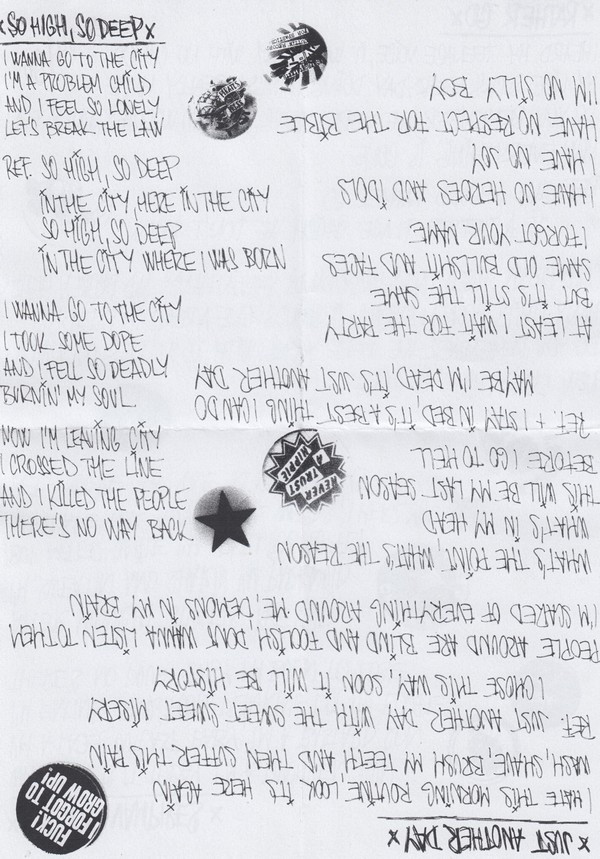 x SO HIGH, SO DEEP x
I WANNA GO TO THE CITY
I'M A PROBLEM CHILD
AND I FEEL SO LONELY
LET'S BREAK THE LAW
REF. SO HIGH, SO DEEP
IN THE CITY, HERE IN THE CITY
SO HIGH, SO DEEP
IN THE CITY WHERE I WAS BORN
I WANNA GO TO THE CITY
I TOOK SOME DOPE
AND I FELL SO DEADLY
BURNIN' MY SOUL
NOW I'M LEAVING CITY
I CROSSED THE LINE
AND I KILLED THE PEOPLE
THERE'S NO WAY BACK
FUCK!
I FORGOT TO
GROW UP!
x JUST ANOTHER DAY x
I HATE THIS MORNING ROUTINE, LOOK IT'S HERE AGAIN
WASH, SHAVE, BRUSH MY TEETH AND THEN SUFFER THIS PAIN
REF. JUST ANOTHER DAY WITH THE SWEET, SWEET MISERY
I CHOSE THIS WAY, SOON IT WILL BE HISTORY
PEOPLE AROUND ARE BLIND AND FOOLISH, WANNA LISTEN TO THEM
I'M SCARED OF EVERYTHING AROUND ME, DEMONS IN MY BRAIN
WHAT'S THE POINT, WHAT'S THE REASON
WHAT'S IN MY HEAD
THIS WILL BE MY LAST SEASON
BEFORE I GO TO HELL
NEVER
TRUST
A
HIPPIE
REF. + I STAY IN BED, IT'S A BEST THING I CAN DO
MAYBE I'M DEAD, IT'S JUST ANOTHER DAY
AT LEAST I WAIT FOR THE PARTY
BUT IT'S STILL THE SAME
SAME OLD BULLSHIT AND FACES
I FORGOT YOUR NAME
I HAVE NO HEROES AND IDOLS
I HAVE NO JOY
HAVE NO RESPECT FOR THE BIBLE
I'M NO SILLY BOY